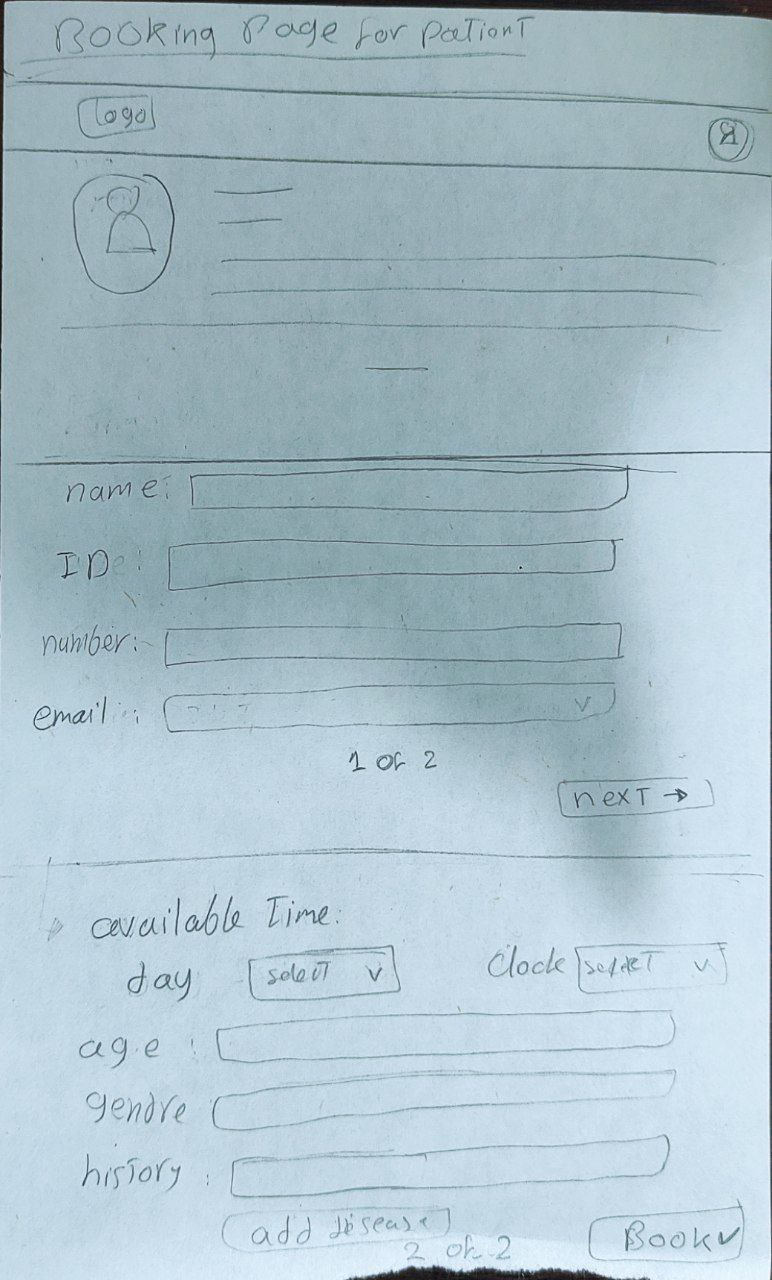 Booking Page for pationt
logo
name:
ID:
number:
email :
1 of 2
next →
available Time:
day select v Clock select v
age :
gendre
history :
add disease
2 of 2
Book ✓